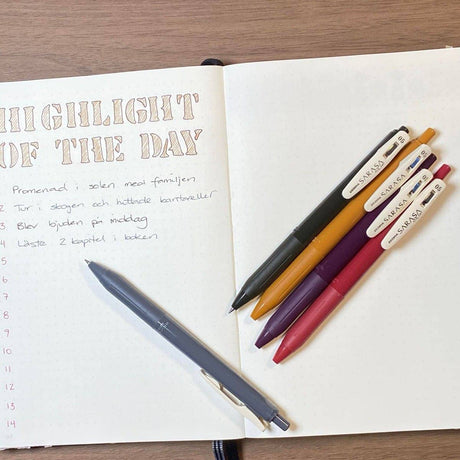 HIGHLIGHT
OF THE DAY
Promenad i solen med familjen
2 Tur i skogen och hittade kantareller
3 Blev bjuden på middag
4 Läste 2 kapitel i boken
5
6
7
8
9
10
11
12
13
14
SARASA 05
SARASA
SARASA
SARASA